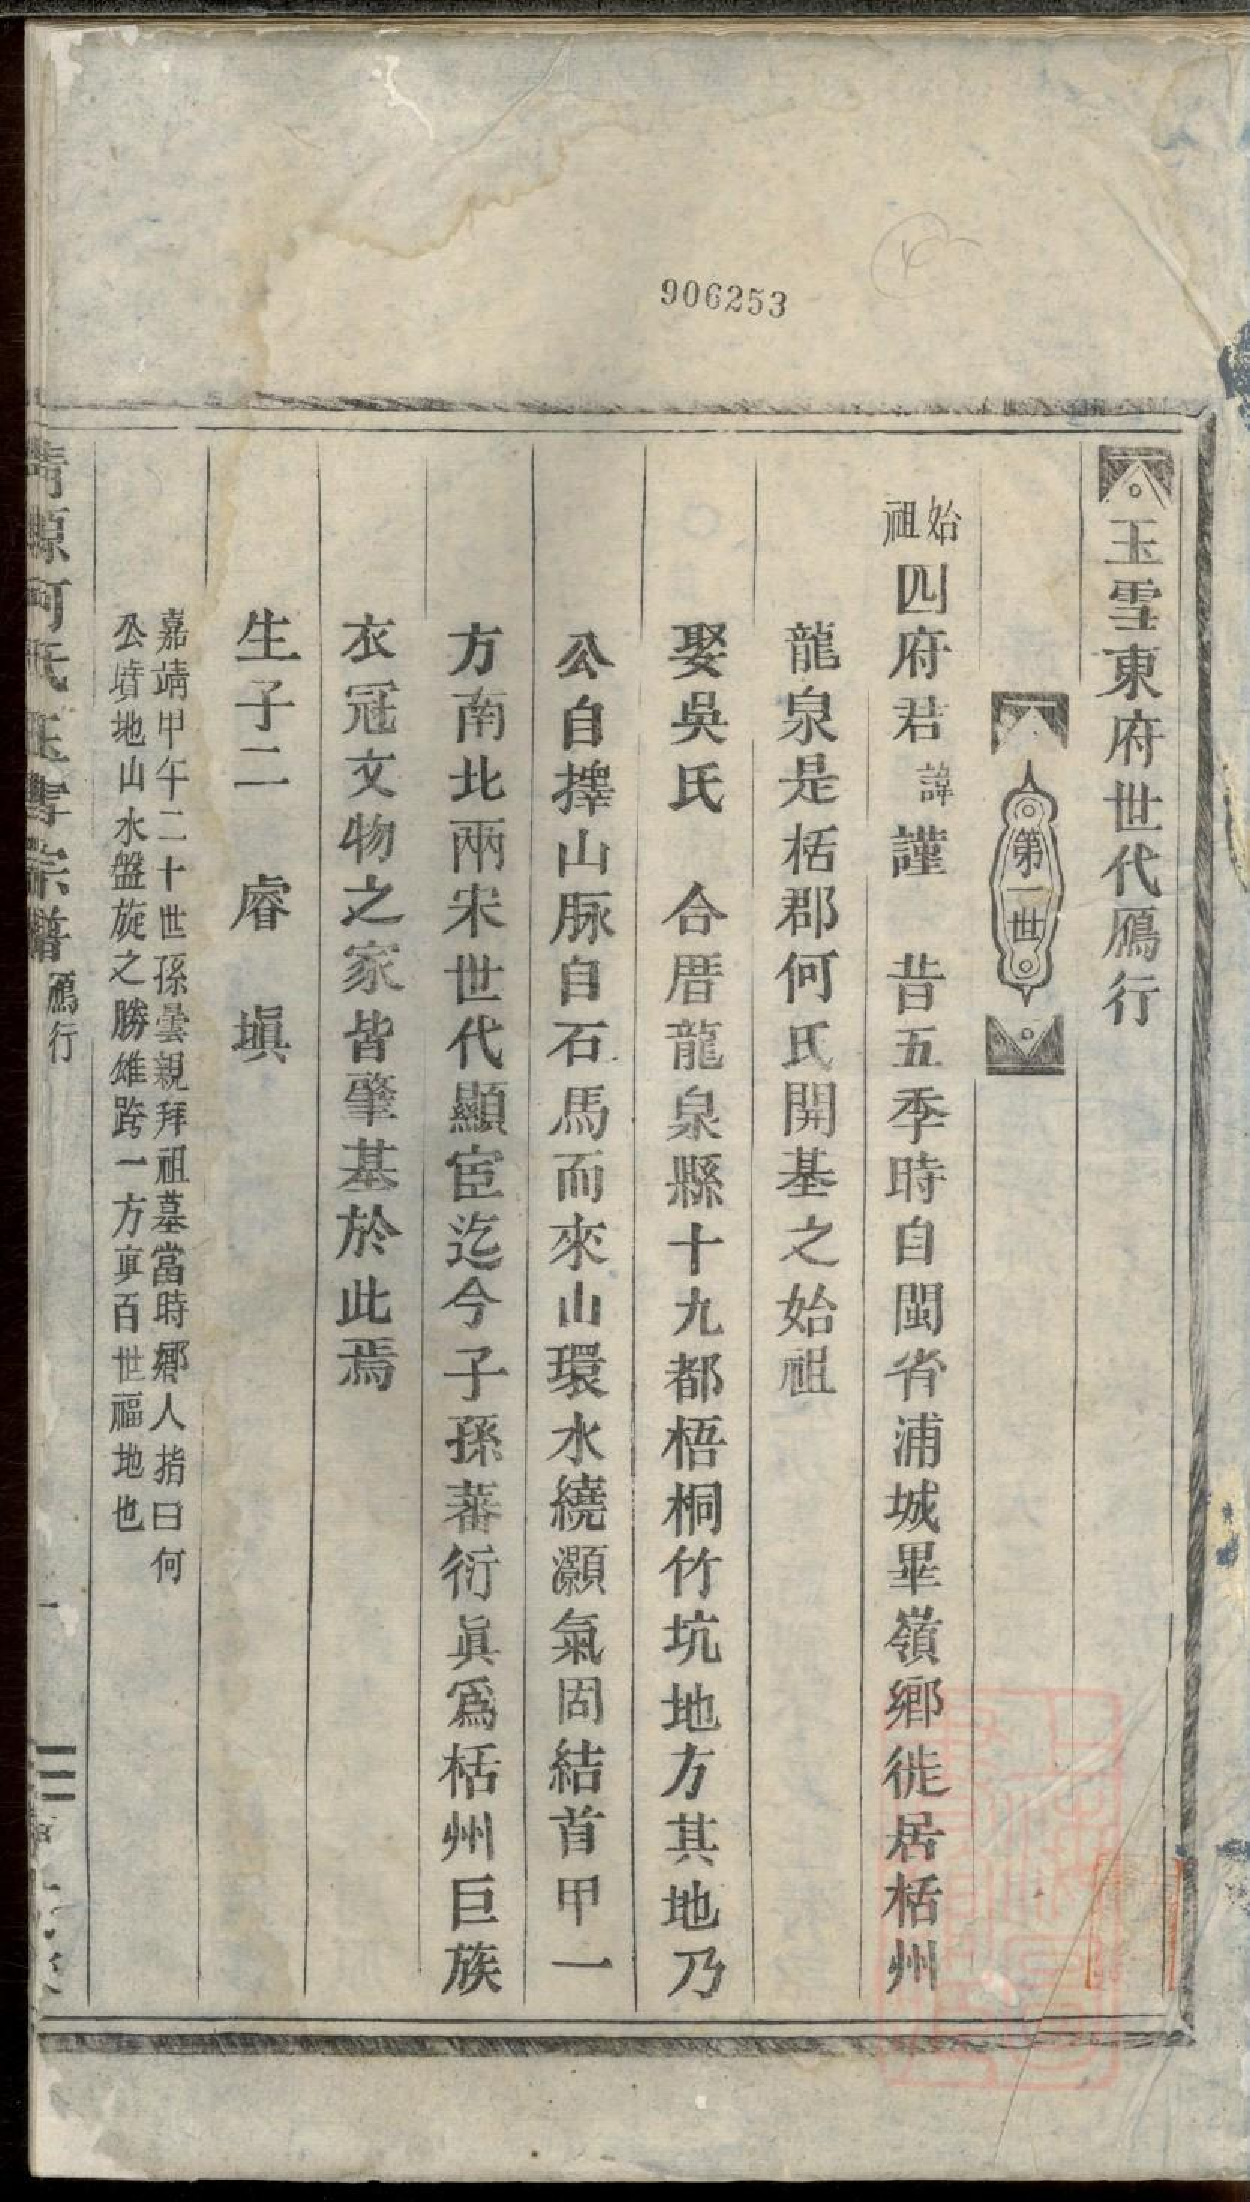 906253
玉雪東府世代鴈行
第一世
始祖四府君諱謹　昔五季時自閩省浦城畢嶺鄉徙居栝州
龍泉是栝郡何氏開基之始祖
娶吳氏　合厝龍泉縣十九都梧桐竹坑地方其地乃
公自擇山脉自石馬而來山環水繞灝氣固結首甲一
方南北兩宋世代顯宦迄今子孫蕃衍眞爲栝州巨族
衣冠文物之家皆肇基於此焉
生子二　睿　塡
嘉靖甲午二十世孫曇親拜祖墓當時鄉人指曰何
公墳地山水盤旋之勝雄跨一方眞百世福地也
何氏玉雪宗譜　鴈行